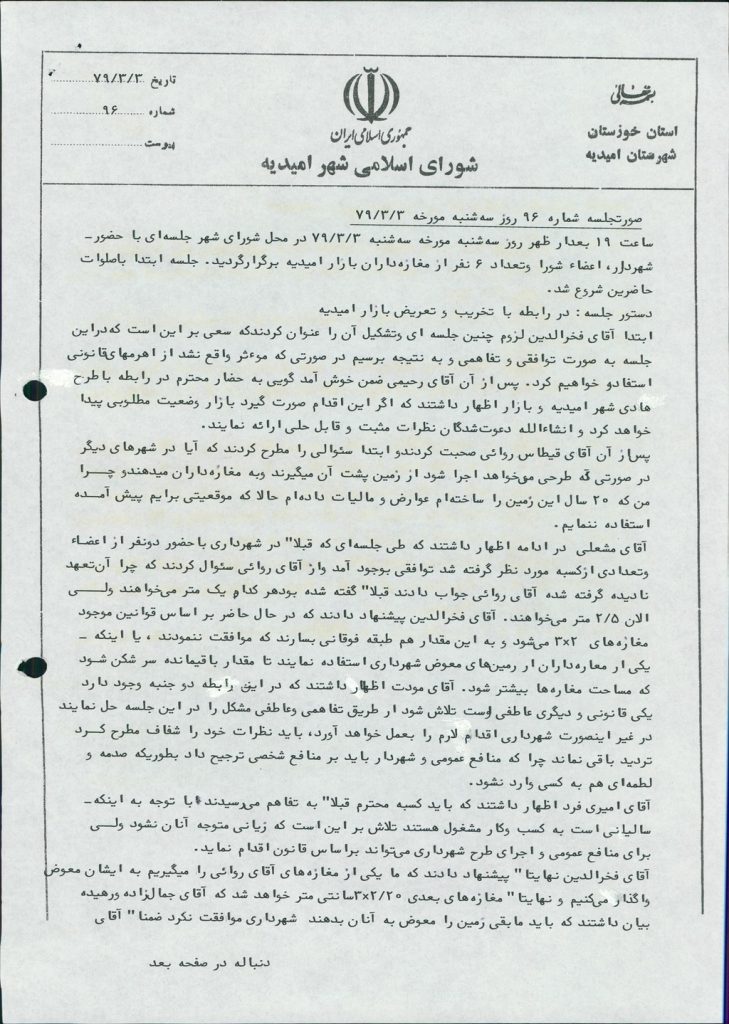 بسمه تعالی
استان خوزستان
شهرستان امیدیه
جمهوری اسلامی ایران
شورای اسلامی شهر امیدیه
تاریخ ۷۹/۳/۳
شماره ۹۶
پیوست
صورتجلسه شماره ۹۶ روز سه‌شنبه مورخه ۷۹/۳/۳
ساعت ۱۹ بعدار ظهر روز سه‌شنبه مورخه سه‌شنبه ۷۹/۳/۳ در محل شورای شهر جلسه‌ای با حضور-
شهردار، اعضاء شورا وتعداد ۶ نفر از مغازه‌داران بازار امیدیه برگزارگردید. جلسه ابتدا باصلوات
حاضرین شروع شد.
دستور جلسه: در رابطه با تخریب و تعریض بازار امیدیه
ابتدا آقای فخرالدین لزوم چنین جلسه ای وتشکیل آن را عنوان کردندکه سعی بر این است که‌دراین
جلسه به صورت توافقی و تفاهمی و به نتیجه برسیم در صورتی که موءثر واقع نشد از اهرمهای‌قانونی
استفاده‌و خواهیم کرد. پس از آن آقای رحیمی ضمن خوش آمد گویی به حضار محترم در رابطه باطرح
هادی شهر امیدیه و بازار اظهار داشتند که اگر این اقدام صورت گیرد بازار وضعیت مطلوبی پیدا
خواهد کرد و انشاءالله دعوت‌شدگان نظرات مثبت و قابل حلی ارائه نمایند.
پس‌از آن آقای قیطاس روائی صحبت کردندو ابتدا سئوالی را مطرح کردند که آیا در شهرهای دیگر
در صورتی که طرحی می‌خواهد اجرا شود از زمین پشت آن میگیرند وبه مغازه‌داران میدهندو چــرا
من که ۲۰ سال این زمین را ساخته‌ام عوارض و مالیات داده‌ام حالا که موقعیتی برایم پیش آمـده
استفاده ننمایم.
آقای مشعلی در ادامه اظهار داشتند که طی جلسه‌ای که قبلا" در شهرداری باحضور دونفر از اعضاء
وتعدادی ازکسبه مورد نظر گرفته شد توافقی بوجود آمد واز آقای روائی سئوال کردند که چرا آن‌تعهد
نادیده گرفته شده آقای روائی جواب دادند قبلا" گفته شده بودهر کدام یک متر می‌خواهند ولـــی
الان ۲/۵ متر می‌خواهند. آقای فخرالدین پیشنهاد دادند که در حال حاضر بر اساس قوانین موجود
مغازه‌های ۳×۲ می‌شود و به این مقدار هم طبقه فوقانی بسارند که موافقت ننمودند ، یا اینکه -
یکی‌ار معاره‌داران از زمین‌های معوض شهرداری استفاده نمایند تا مقدار باقیمانده سر شکن شود
که مساحت مغازه‌ها بیشتر شود. آقای مودت اظهار داشتند که در این رابطه دو جنبه وجود دارد
یکی قانونی و دیگری عاطفی است تلاش شود ار طریق تفاهمی وعاطفی مشکل را در این جلسه حل نمایند
در غیر اینصورت شهرداری اقدام لازم را بعمل خواهد آورد، باید نظرات خود را شفاف مطرح کـرد
تردید باقی نماند چرا که منافع عمومی و شهردار باید بر منافع شخصی ترجیح داد بطوریکه صدمه و
لطمه‌ای هم به کسی وارد نشود.
آقای امیری فرد اظهار داشتند که باید کسبه محترم قبلا" به تفاهم می‌رسیدند با توجه به اینکه-
سالیانی است به کسب وکار مشغول هستند تلاش بر این است که زیانی متوجه آنان نشود ولــی
برای منافع عمومی و اجرای طرح شهرداری می‌تواند براساس قانون اقدام نماید.
آقای فخرالدین نهایتا" پیشنهاد دادند که ما یکی از مغازه‌های آقای روائی را میگیریم به ایشان معوض
واگذار می‌کنیم و نهایتا" مغازه‌های بعدی ۳×۲/۲۰سانتی متر خواهد شد که آقای جمال‌زاده ورهیده
بیان داشتند که باید مابقی زمین را معوض به آنان بدهند شهرداری موافقت نکرد ضمنا" آقای
دنباله در صفحه بعد